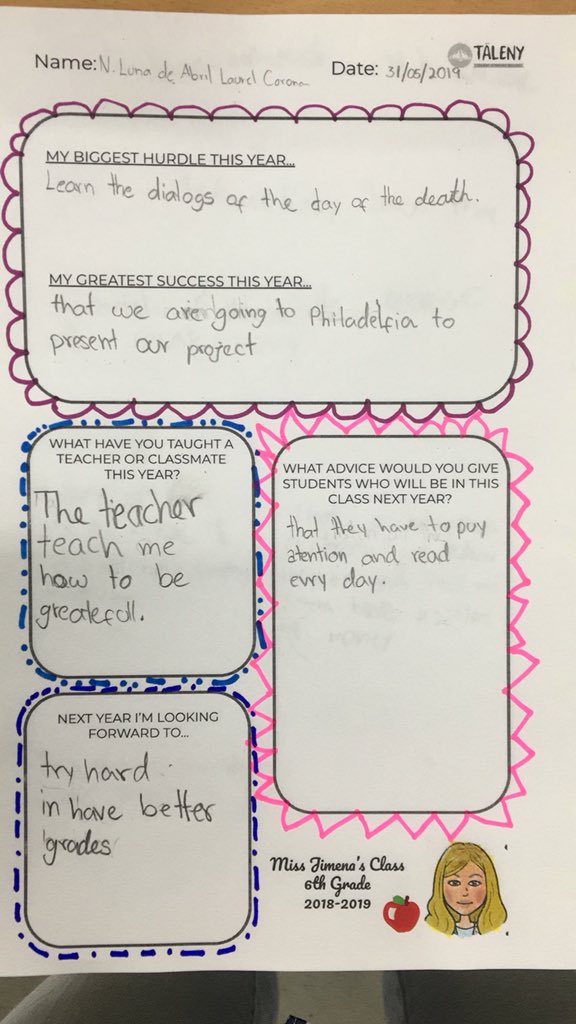 Name: N. Luna de Abril Laurel Corona Date: 31/05/2019 TÁLENY
MY BIGGEST HURDLE THIS YEAR...
Learn the dialogs of the day of the death.
MY GREATEST SUCCESS THIS YEAR...
that we are going to Philadelfia to
present our project
WHAT HAVE YOU TAUGHT A
TEACHER OR CLASSMATE
THIS YEAR?
The teacher
teach me
how to be
greatefull.
WHAT ADVICE WOULD YOU GIVE
STUDENTS WHO WILL BE IN THIS
CLASS NEXT YEAR?
that they have to puy
atention and read
evry day.
NEXT YEAR I'M LOOKING
FORWARD TO...
try hard
in have better
grades
Miss Jimena's Class
6th Grade
2018-2019